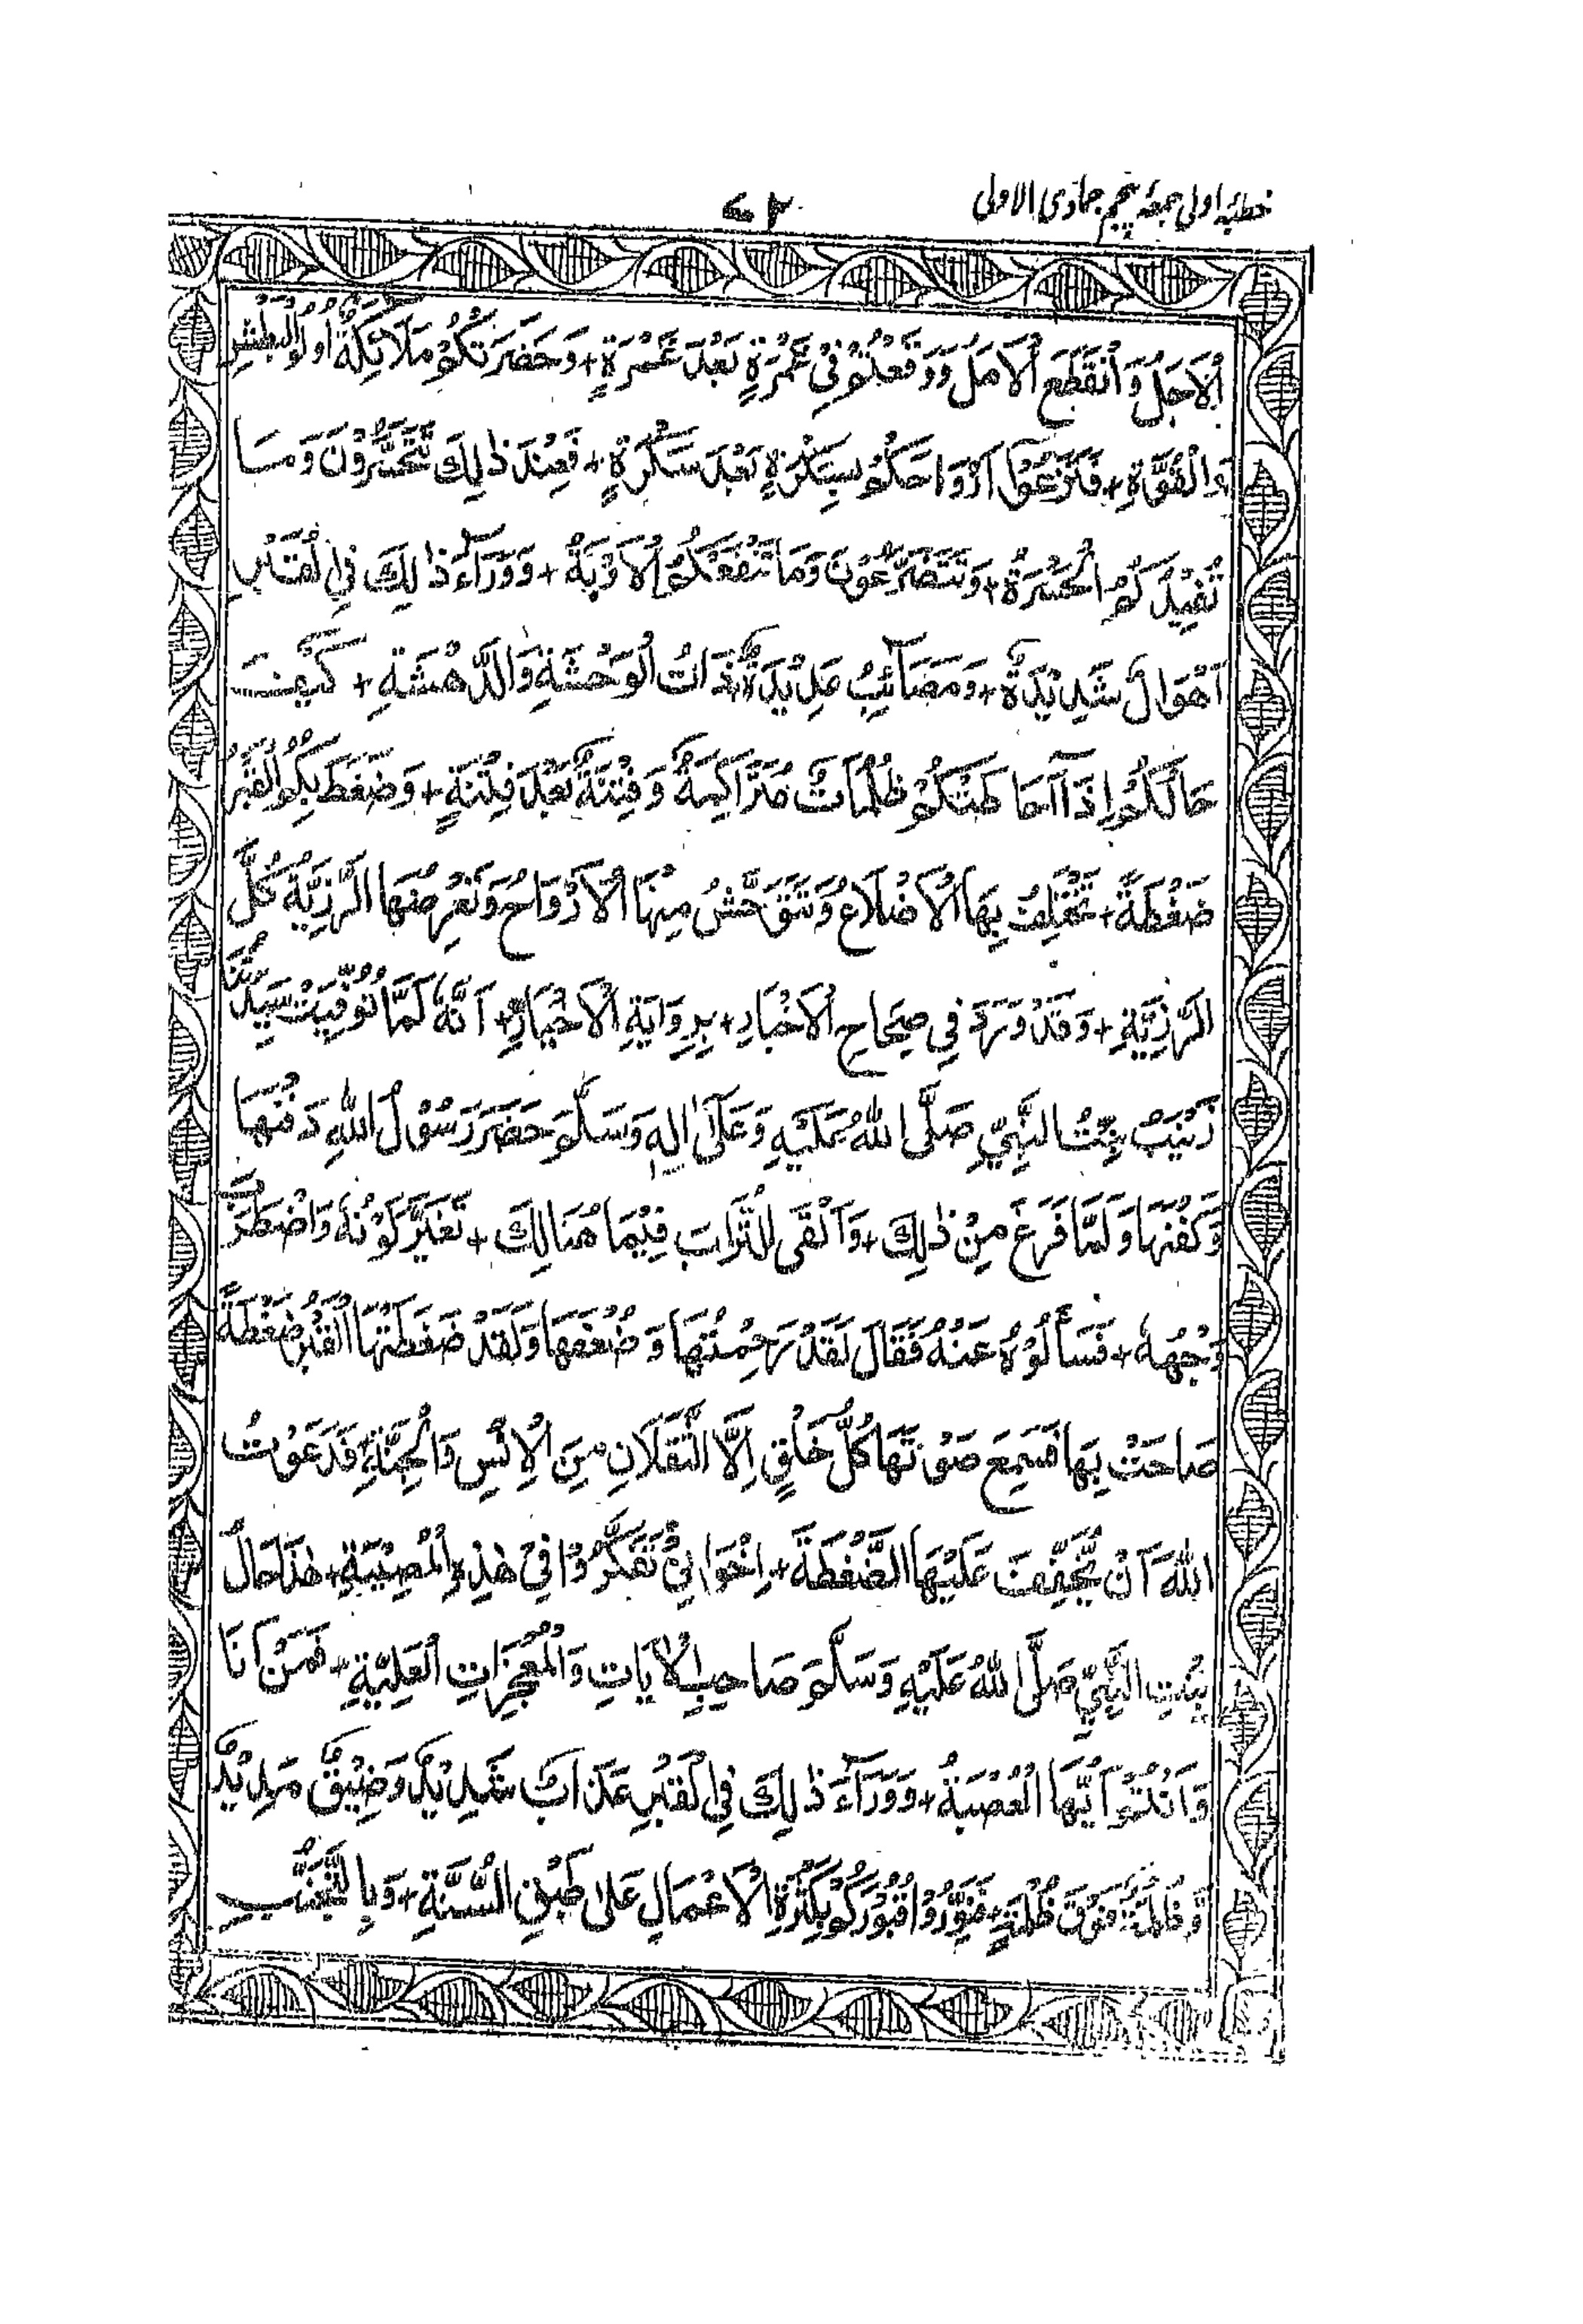 خطبۂ اولی جمعۂ پنجم جمادی الاولی
۷۲
اَلْاَجَلُ وَانْقَطَعَ الْاَمَلُ وَوَقَعْتُمْ فِیْ غَمْرَةٍ بَعْدَ غَمْرَةٍ + وَحَضَرَتْكُمْ مَلَائِكَةٌ اُولُو الْبَطْشِ
وَالْقُوَّةِ + فَنَزَعُوْا اَرْوَاحَكُمْ بِسَكْرَةٍ بَعْدَ سَكْرَةٍ + فَعِنْدَ ذٰلِكَ تَتَحَسَّرُوْنَ وَمَا
تُفِیْدُكُمُ الْحَسْرَةُ + وَتَتَضَرَّعُوْنَ وَمَا تَنْفَعُكُمُ الْاَوْبَةُ + وَوَرَآءَ ذٰلِكَ فِی الْقَبْرِ
اَهْوَالٌ شَدِیْدَةٌ + وَمَصَآئِبُ عَدِیْدَةٌ ذَاتُ الْوَحْشَةِ وَالدَّهْشَةِ + كَیْفَ
حَالُكُمْ اِذَا اَحَاطَتْكُمْ ظُلُمَاتٌ مُتَرَاكِمَةٌ وَفِتْنَةٌ بَعْدَ فِتْنَةٍ + وَضَغَطَ بِكُمُ الْقَبْرُ
ضَغْطَةً + تَخْتَلِفُ بِهَا الْاَضْلَاعُ وَتَتَوَحَّشُ مِنْهَا الْاَرْوَاحُ وَتَعْرِضُهَا الرَّزِیَّةُ كُلَّ
الرَّزِیَّةِ + وَقَدْ وَرَدَ فِی صِحَاحِ الْاَخْبَارِ + بِرِوَایَةِ الْاَخْیَارِ + اَنَّهٗ لَمَّا تُوُفِّیَتْ سَیِّدَتُنَا
زَیْنَبُ بِنْتُ النَّبِیِّ صَلَّی اللّٰهُ عَلَیْهِ وَعَلٰی اٰلِهٖ وَسَلَّمَ حَضَرَ رَسُوْلُ اللّٰهِ دَفْنَهَا
وَكَفْنَهَا وَلَمَّا فَرَغَ مِنْ ذٰلِكَ + وَاَلْقَی التُّرَابَ فِیْمَا هُنَالِكَ + تَغَیَّرَ لَوْنُهٗ وَاضْطَرَبَ
وَجْهُهٗ + فَسَأَلُوْهُ عَنْهُ فَقَالَ لَقَدْ رَحِمْتُهَا وَضُعْفَهَا وَلَقَدْ ضَغَطَتْهَا الْقَبْرُ ضَغْطَةً
صَاحَتْ بِهَا فَسَمِعَ صَوْتَهَا كُلُّ خَلْقٍ اِلَّا الثَّقَلَانِ مِنَ الْاِنْسِ وَالْجِنَّةِ فَدَعَوْتُ
اللّٰهَ اَنْ یُّخَفِّفَ عَلَیْهَا الضَّغْطَةَ + اِخْوَانِیْ تَفَكَّرُوْا فِیْ هٰذِهِ الْمُصِیْبَةِ + هٰذَا حَالُ
بِنْتِ النَّبِیِّ صَلَّی اللّٰهُ عَلَیْهِ وَسَلَّمَ صَاحِبِ الْاٰیَاتِ وَالْمُعْجِزَاتِ الْعَلِیَّةِ + فَمَنْ اَنَا
وَاَنْتُمْ اَیُّهَا الْعُصْبَةُ + وَوَرَآءَ ذٰلِكَ فِی الْقَبْرِ عَذَابٌ شَدِیْدٌ وَضِیْقٌ مَدِیْدٌ
وَّظُلْمَةٌ فَوْقَ ظُلْمَةٍ + فَنَوِّرُوْا قُبُوْرَكُمْ بِكَثْرَةِ الْاَعْمَالِ عَلٰی طَبْقِ السُّنَّةِ + وَبِالتَّجَنُّبِ